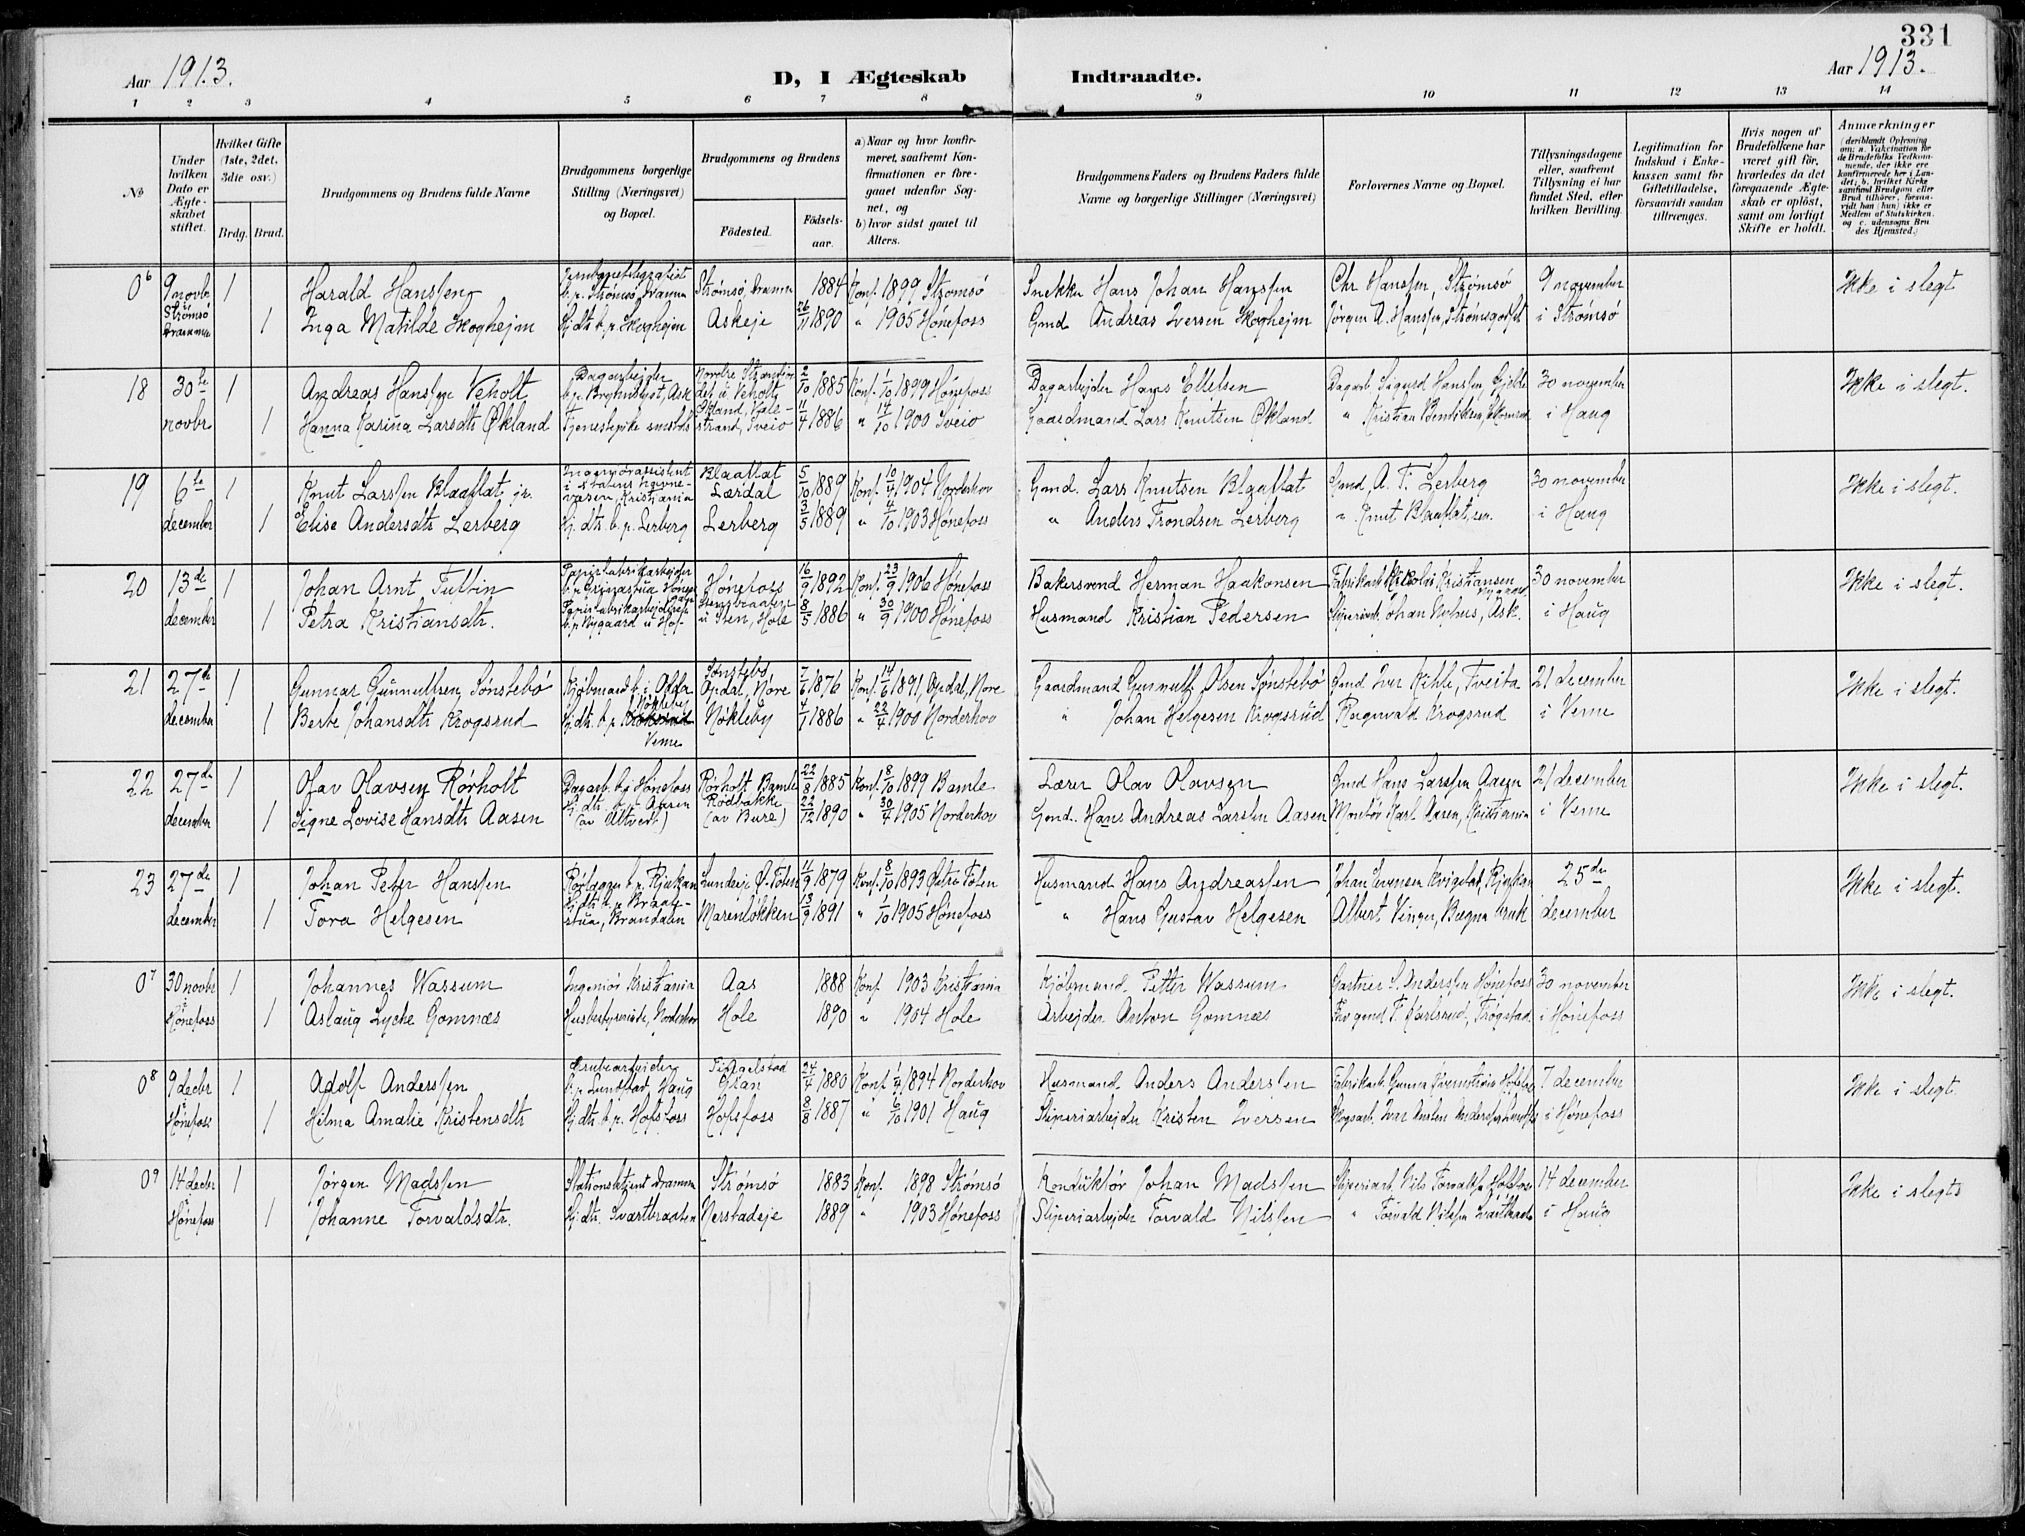 331
Aar 1913. D, I Ægteskab Indtraadte. Aar 1913.
1 2 3 4 5 6 7 8 9 10 11 12 13 14
№
Under hvilken Dato er Ægteskabet stiftet.
Hvilket Gifte (1ste, 2det, 3die osv.)
Brdg. Brud.
Brudgommens og Brudens fulde Navne
Brudgommens borgerlige Stilling (Næringsvei) og Bopæl.
Brudgommens og Brudens
Födested. Födsels-aar.
a) Naar og hvor konfirmeret, saafremt Konfirmationen er foregaaet udenfor Sognet, og
b) hvor sidst gaaet til Alters.
Brudgommens Faders og Brudens Faders fulde Navne og borgerlige Stillinger (Næringsvei)
Forlovernes Navne og Bopæl.
Tillysningsdagene eller, saafremt Tillysning ei har fundet Sted, efter hvilken Bevilling.
Legitimation for Indskud i Enkekassen samt for Giftetilladelse, forsaavidt saadan tiltrænges.
Hvis nogen af Brudefolkene har været gift för, hvorledes da det foregaaende Ægteskab er oplöst, samt om lovligt Skifte er holdt.
Anmærkninger (deriblandt Oplysning om: a. Vakcination for de Brudefolks Vedkommende, der ikke ere konfirmerede her i Landet; b. hvilket Kirkesamfund Brudgom eller Brud tilhörer, forsaavidt han (hun) ikke er Medlem af Statskirken, og c. udensogns Brudes Hjemsted.)
06 9 novbr 1 Harald Hanssen b. p. Strømsø, Dramm Strømsø, Dramm 1884 Konf. 1899 Strømsø Snekker Hans Johan Hanssen Chr. Hanssen, Strømsø 9 november Ikke i slegt
Strømsø Drammen 1 Inga Matilde Skogheim Hj.dtr. b. p. Skogheim Askeje 26/11 1890 " 1905 Hönefoss Gmd Andreas Iversen Skogheim Jörgen A. Hanssen, Strømsgodset i Strømsø
18 30te 1 Andreas Hanssen Veholt Dagarbejder 2/10 1885 Konf. 1/10 1899 Hönefoss Dagarbejder Hans Ellefsen Dagarb. Sigurd Hanssen 30 november Ikke i slegt.
novbr 1 Hanna Karina Larsdtr Økland Tjenestepike Økland, Sveio 11/4 1886 " 14/10 1900 Sveio Gaardmand Lars Knutsen Økland " Kristian i Haug
19 6te 1 Knut Larssen Blaaflat, jr. Ingeniörassistent i Statens Havnevæsen, Kristiania Blaaflat Lærdal 5/10 1889 Konf. 10/4 1904 Norderhov Gmd. Lars Knutsen Blaaflat Gmd. A. T. Lerberg 30 november Ikke i slegt.
december 1 Elise Andersdtr Lerberg Hj.dtr. b. p. Lerberg Lerberg 3/5 1889 " 4/10 1903 Hönefoss " Anders Trondsen Lerberg " Knut Blaaflat, sen. i Haug
20 13de 1 Johan Arnt Tuttin Papirfabrikarbejder Hönefoss 16/9 1892 Konf. 23/9 1906 Hönefoss Bakersvend Herman Haakonsen Fabrikarb. Kristiansen 30 november Ikke i slegt.
december 1 Petra Kristiansdtr. b. p. Nygaard u. Hof- u Sten, Hole 8/5 1886 " 30/9 1900 Hönefoss Husmand Kristian Pedersen Sliperiarb. Johan Nyhus, Ask. i Haug
21 27de 1 Gunnar Gunnulfsen Sönstebö Kjöbmand b. i Odda Sönstebö Opdal, Nore 7/6 1876 Konf. 14/6 1891, Opdal, Nore Gaardmand Gunnulf Olsen Sönstebö Gmd Iver Kihle, Tveita 21 december Ikke i slegt.
december 1 Berte Johansdtr Krogsrud Hj.dtr. b. p. Nökleby Veme Nökleby 4/1 1886 " 22/4 1900 Norderhov " Johan Helgesen Krogsrud Ragnvald Krogsrud i Veme
22 27de 1 Olav Olavsen Rörholt Dagarb. b. p. Hönefoss Rörholt Bamle 22/8 1885 Konf. 8/10 1899 Bamle Lærer Olav Olavsen Gmd Hans Larssen Aasen 21 december Ikke i slegt.
december 1 Signe Lovise Hansdtr Aasen Hj.dtr. b. p. Aasen Rödbakke (av Bure) 22/12 1890 " 30/4 1905 Norderhov Gmd. Hans Andreas Larssen Aasen Montör Karl Aasen, Kristiania i Veme
23 27de 1 Johan Peter Hanssen Rörlægger b. p. Rjukan Ö. Toten 11/9 1879 Konf. 8/10 1893 Östre Toten Husmand Hans Andreassen Johan Svensen Kvigstad, Rjukan 25de Ikke i slegt.
december 1 Tora Helgesen Hj.dtr. b. p. Braatestua, Brandalen Marinlökken 13/9 1891 " 1/10 1905 Hönefoss " Hans Gustav Helgesen Albert Vinger, Bægna bruk december
07 30 novbr 1 Johannes Wassum Ingeniör Kristiania Aas 1888 Konf. 1903 Kristiania Kjöbmand Petter Wassum Gartner S. Anderssen Hönefoss 30 november Ikke i slegt.
i Hönefoss 1 Aslaug Lycke Gomnæs Husbestyrerinde, Norderhov Hole 1890 " 1904 Hole Arbejder Anton Gomnæs T. Karlsrud, Trögstad i Hönefoss
08 9 decbr 1 Adolf Anderssen b. p. Haug Tingelstad Gran 24/4 1880 Konf. 1894 Norderhov Husmand Anders Anderssen Fabrikarb. Gunnar 7 december Ikke i slegt
i Hönefoss 1 Hilma Amalie Kristensdtr Hj.dtr. b. p. Hofsfoss Hofsfoss 8/8 1887 " 6/10 1901 Haug Sliperiarbejder Kristen Iversen Skogsarb. Ivar i Hönefoss
09 14 decbr 1 Jörgen Madssen Stationsbetjent Dramm Strømsø 1883 Konf. 1898 Strømsø Konduktör Johan Madssen Sliperiarb. Nils Torvaldsen Hofsfoss 14 december Ikke i slegts
i Hönefoss 1 Johanne Torvaldsdtr. Hj.dtr. Svartbraaten Nerstadeje 1889 " 1903 Hönefoss Sliperiarbejder Torvald Nilssen " Torvald Nilssen Svartbraaten i Haug